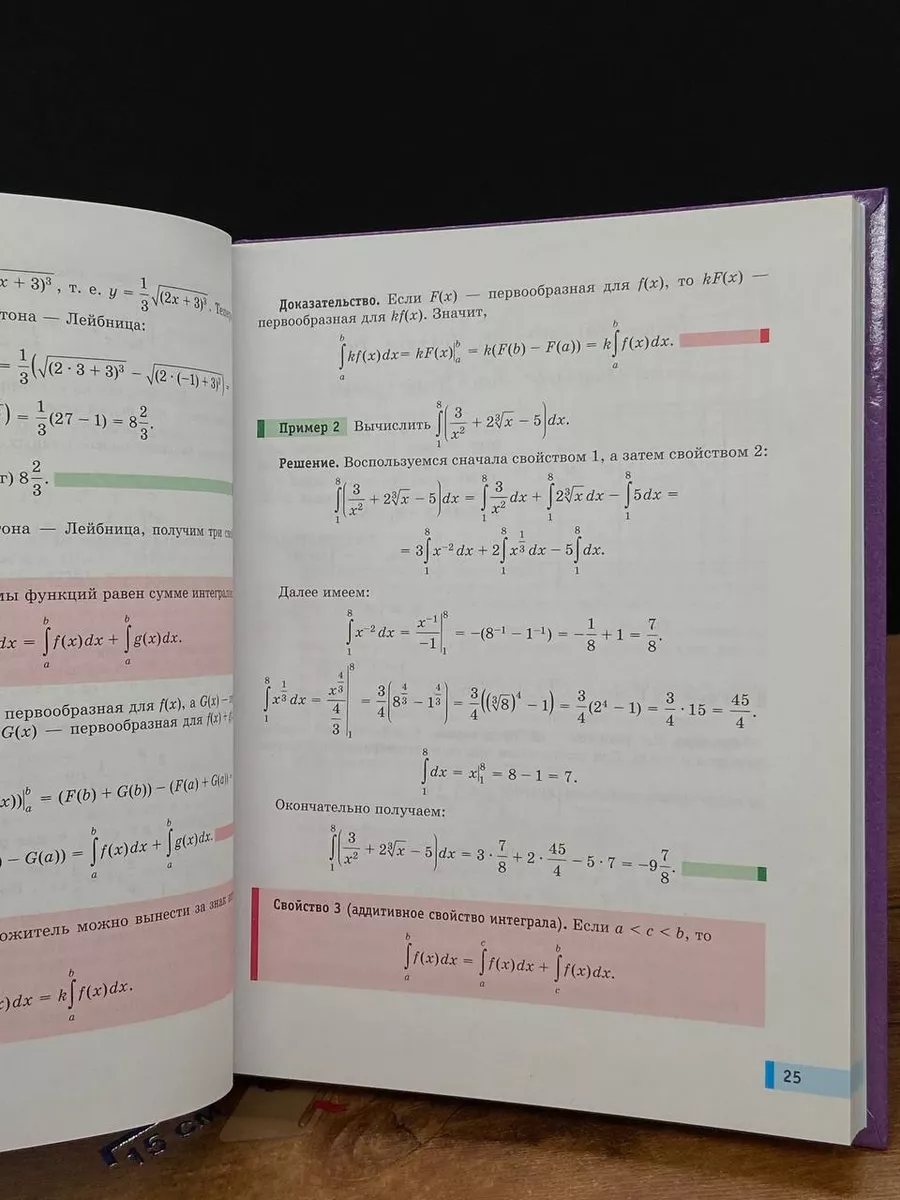 x + 3)³, т. е. y = 1/3 √(2x + 3)³.
тона — Лейбница:
= 1/3 (√(2 · 3 + 3)³ − √(2 · (−1) + 3)³).
) = 1/3 (27 − 1) = 8 2/3.
г) 8 2/3.
тона — Лейбница, получим три
мы функций равен сумме
dx = ∫ₐᵇ f(x)dx + ∫ₐᵇ g(x)dx.
первообразная для f(x), а G(x) —
G(x) — первообразная для
x))|ₐᵇ = (F(b) + G(b)) − (F(a) + G(a))
− G(a)) = ∫ₐᵇ f(x)dx + ∫ₐᵇ g(x)dx.
ожитель можно вынести за знак
x)dx = k∫ₐᵇ f(x)dx.
Доказательство. Если F(x) — первообразная для f(x), то kF(x) —
первообразная для kf(x). Значит,
∫ₐᵇ kf(x)dx = kF(x)|ₐᵇ = k(F(b) − F(a)) = k∫ₐᵇ f(x)dx.
Пример 2 Вычислить ∫₁⁸ (3/x² + 2∛x − 5)dx.
Решение. Воспользуемся сначала свойством 1, а затем свойством 2:
∫₁⁸ (3/x² + 2∛x − 5)dx = ∫₁⁸ 3/x² dx + ∫₁⁸ 2∛x dx − ∫₁⁸ 5dx =
= 3∫₁⁸ x⁻² dx + 2∫₁⁸ x^(1/3) dx − 5∫₁⁸ dx.
Далее имеем:
∫₁⁸ x⁻² dx = x⁻¹/−1 |₁⁸ = −(8⁻¹ − 1⁻¹) = −1/8 + 1 = 7/8.
∫₁⁸ x^(1/3) dx = x^(4/3)/(4/3) |₁⁸ = 3/4 (8^(4/3) − 1^(4/3)) = 3/4 ((∛8)⁴ − 1) = 3/4 (2⁴ − 1) = 3/4 · 15 = 45/4.
∫₁⁸ dx = x|₁⁸ = 8 − 1 = 7.
Окончательно получаем:
∫₁⁸ (3/x² + 2∛x − 5)dx = 3 · 7/8 + 2 · 45/4 − 5 · 7 = −9 7/8.
Свойство 3 (аддитивное свойство интеграла). Если a < c < b, то
∫ₐᵇ f(x)dx = ∫ₐᶜ f(x)dx + ∫꜀ᵇ f(x)dx.
25
15 СМ